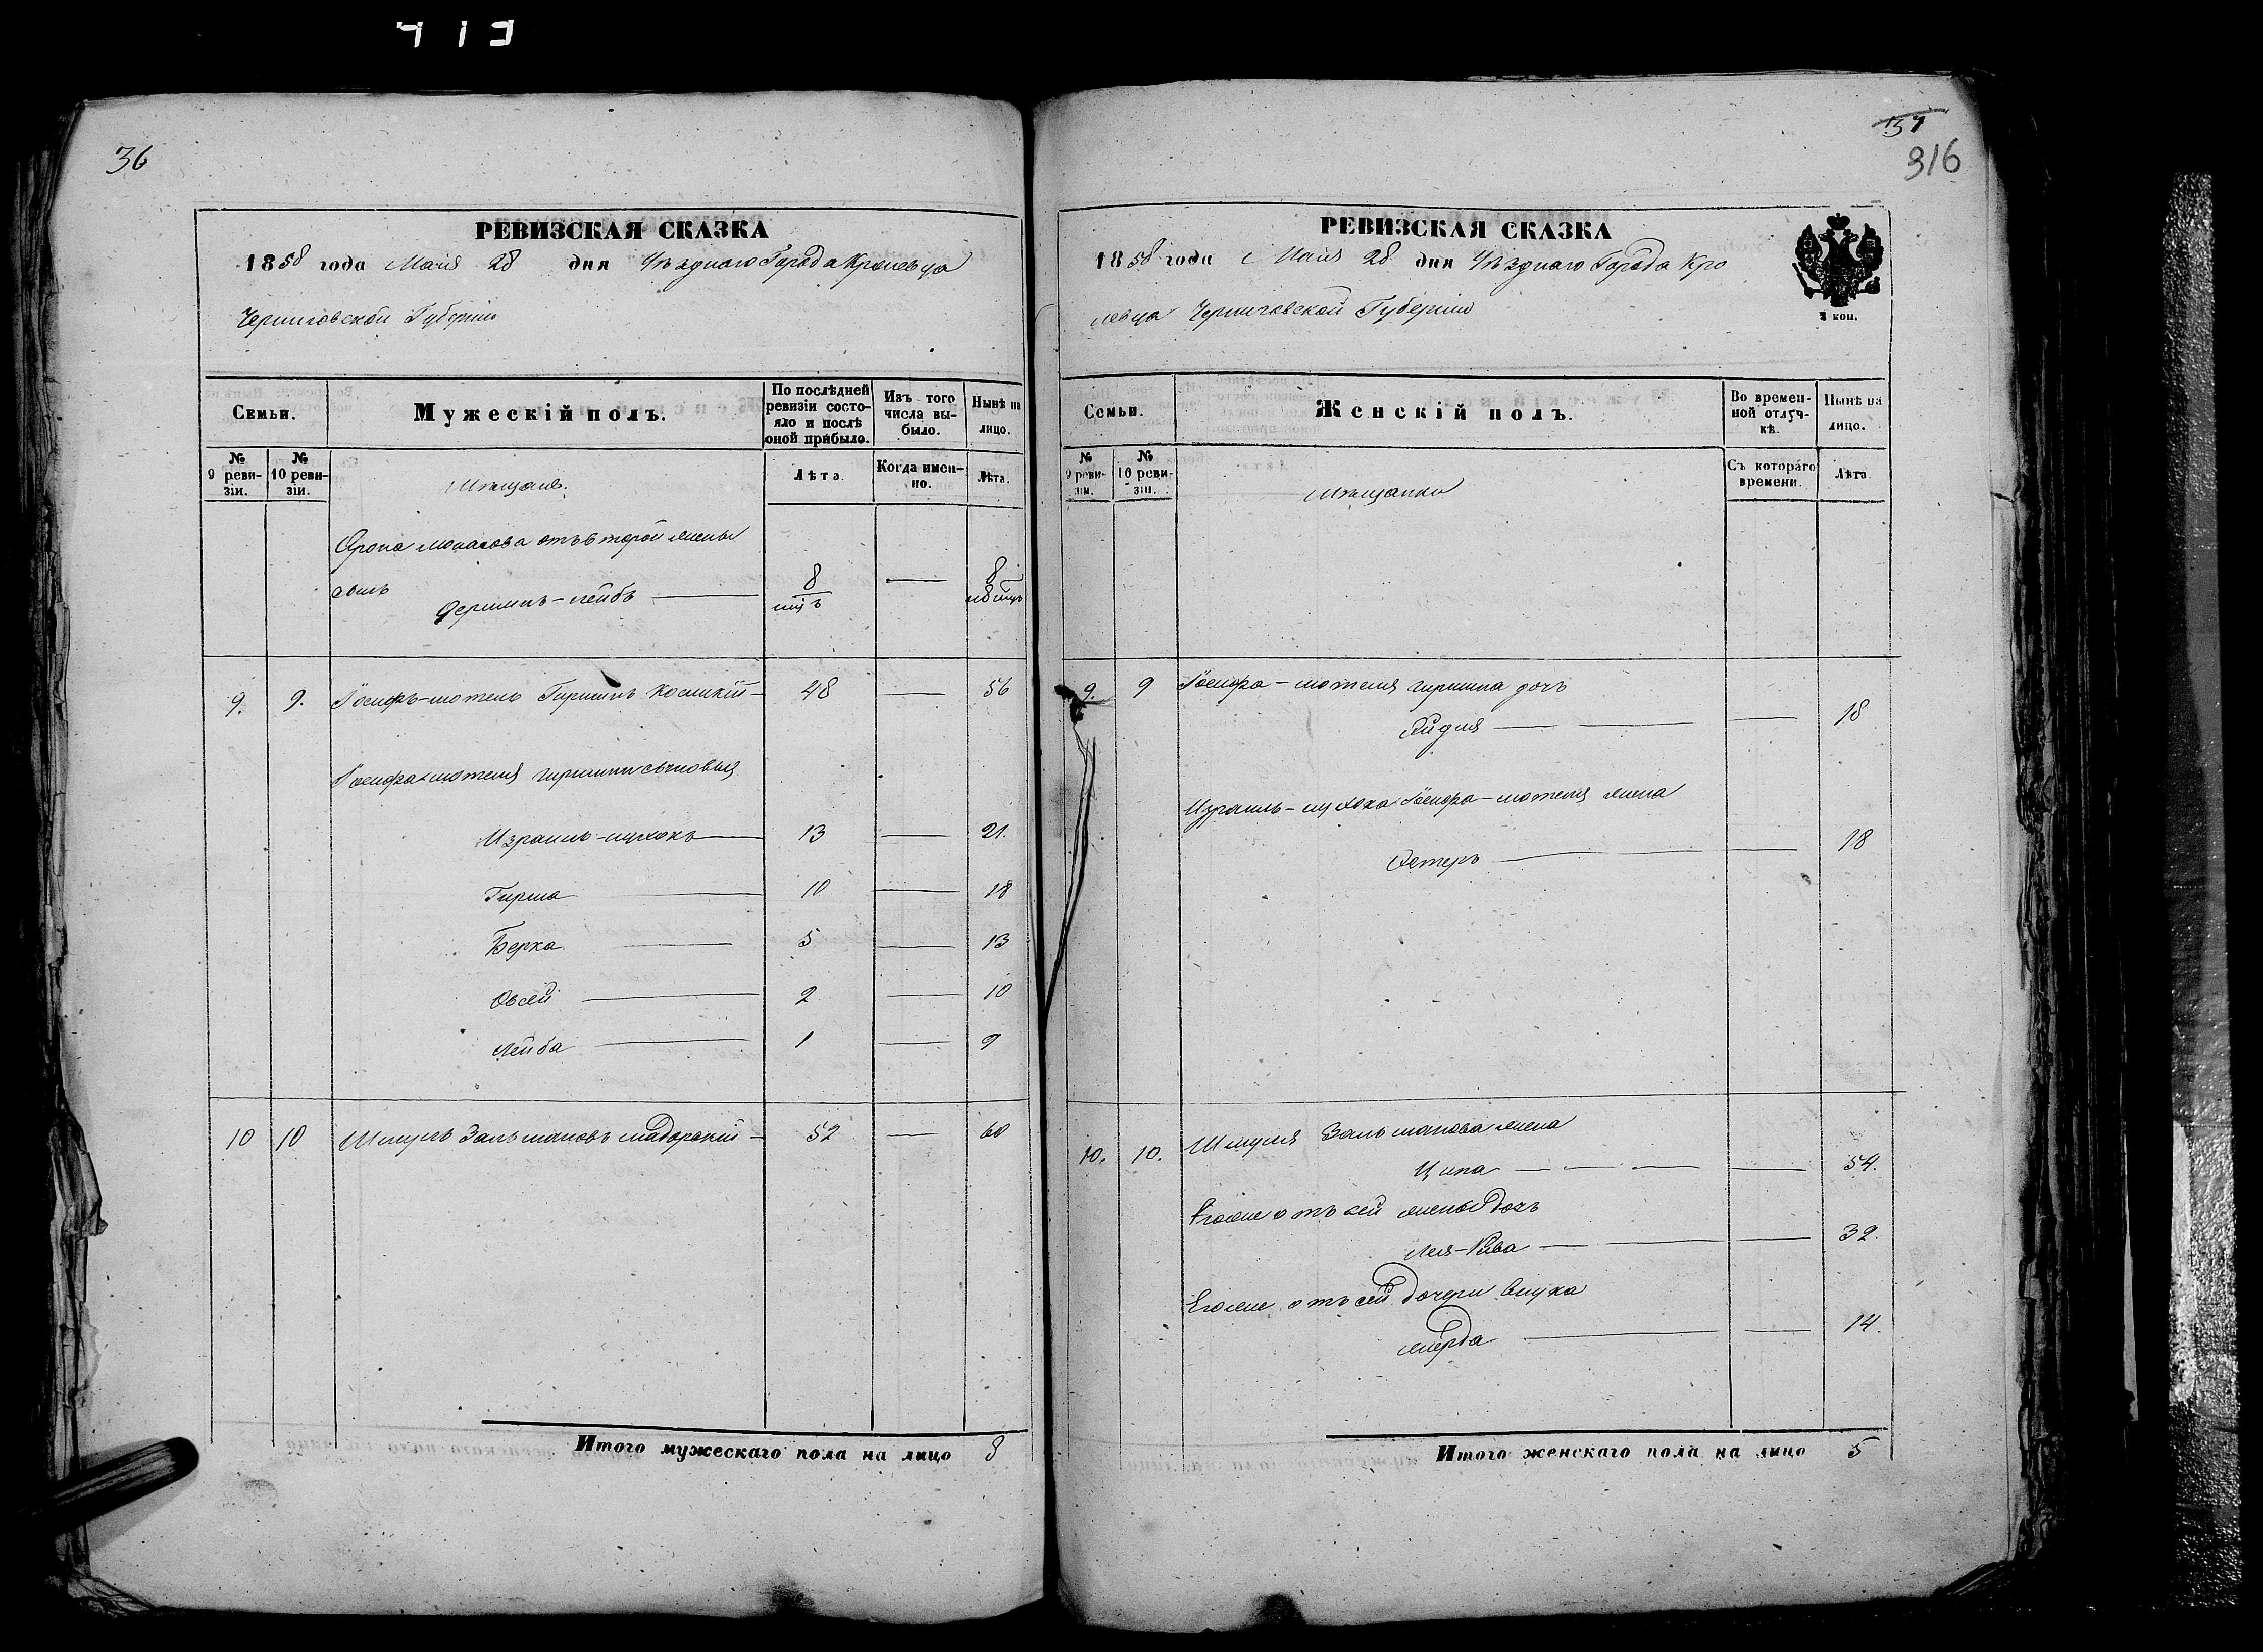 413
36
РЕВИЗСКАЯ СКАЗКА
1858 года Маія 28 дня Уѣзднаго Города Кролевца
Черниговской Губерніи
Семьи.
Мужескій полъ.
По послѣдней ревизіи состояло и послѣ оной прибыло.
Изъ того числа выбыло.
Нынѣ на лицо.
№ 9 ревизіи.
№ 10 ревизіи.
Мѣщане.
Лѣта.
Когда именно.
Лѣта.
Арона Монасова отъ второй жены
сынъ
Гершинъ-лейбъ 8 — 8
9. 9. Іосифъ-мотель Гиршинъ 48 — 56
Іосифа-мотеля гиршина сыновья
Израиль 13 — 21.
Гирша 10 — 18
Берка 5 — 13
Овсей 2 — 10
Лейба 1 — 9
10 10 Шмуль Зальмановъ 52 — 60
Итого мужескаго пола на лицо 8
37
316
РЕВИЗСКАЯ СКАЗКА
1858 года Маія 28 дня Уѣзднаго Города Кро
левца Черниговской Губерніи
2 коп.
Семьи.
Женскій полъ.
Во временной отлучкѣ.
Нынѣ на лицо.
№ 9 ревизіи.
№ 10 ревизіи.
Мѣщанки
Съ котораго времени.
Лѣта
9. 9 Іосифа-мотеля гиршина дочь
— 18
Іосифа-мотеля жена
Естеръ — 18
10. 10. Шмуля Зальманова жена
Ципа — 54.
Его же отъ сей жены дочь
Лея-Рива — 32.
Его же отъ сей дочери внука
Мерда — 14.
Итого женскаго пола на лицо 5